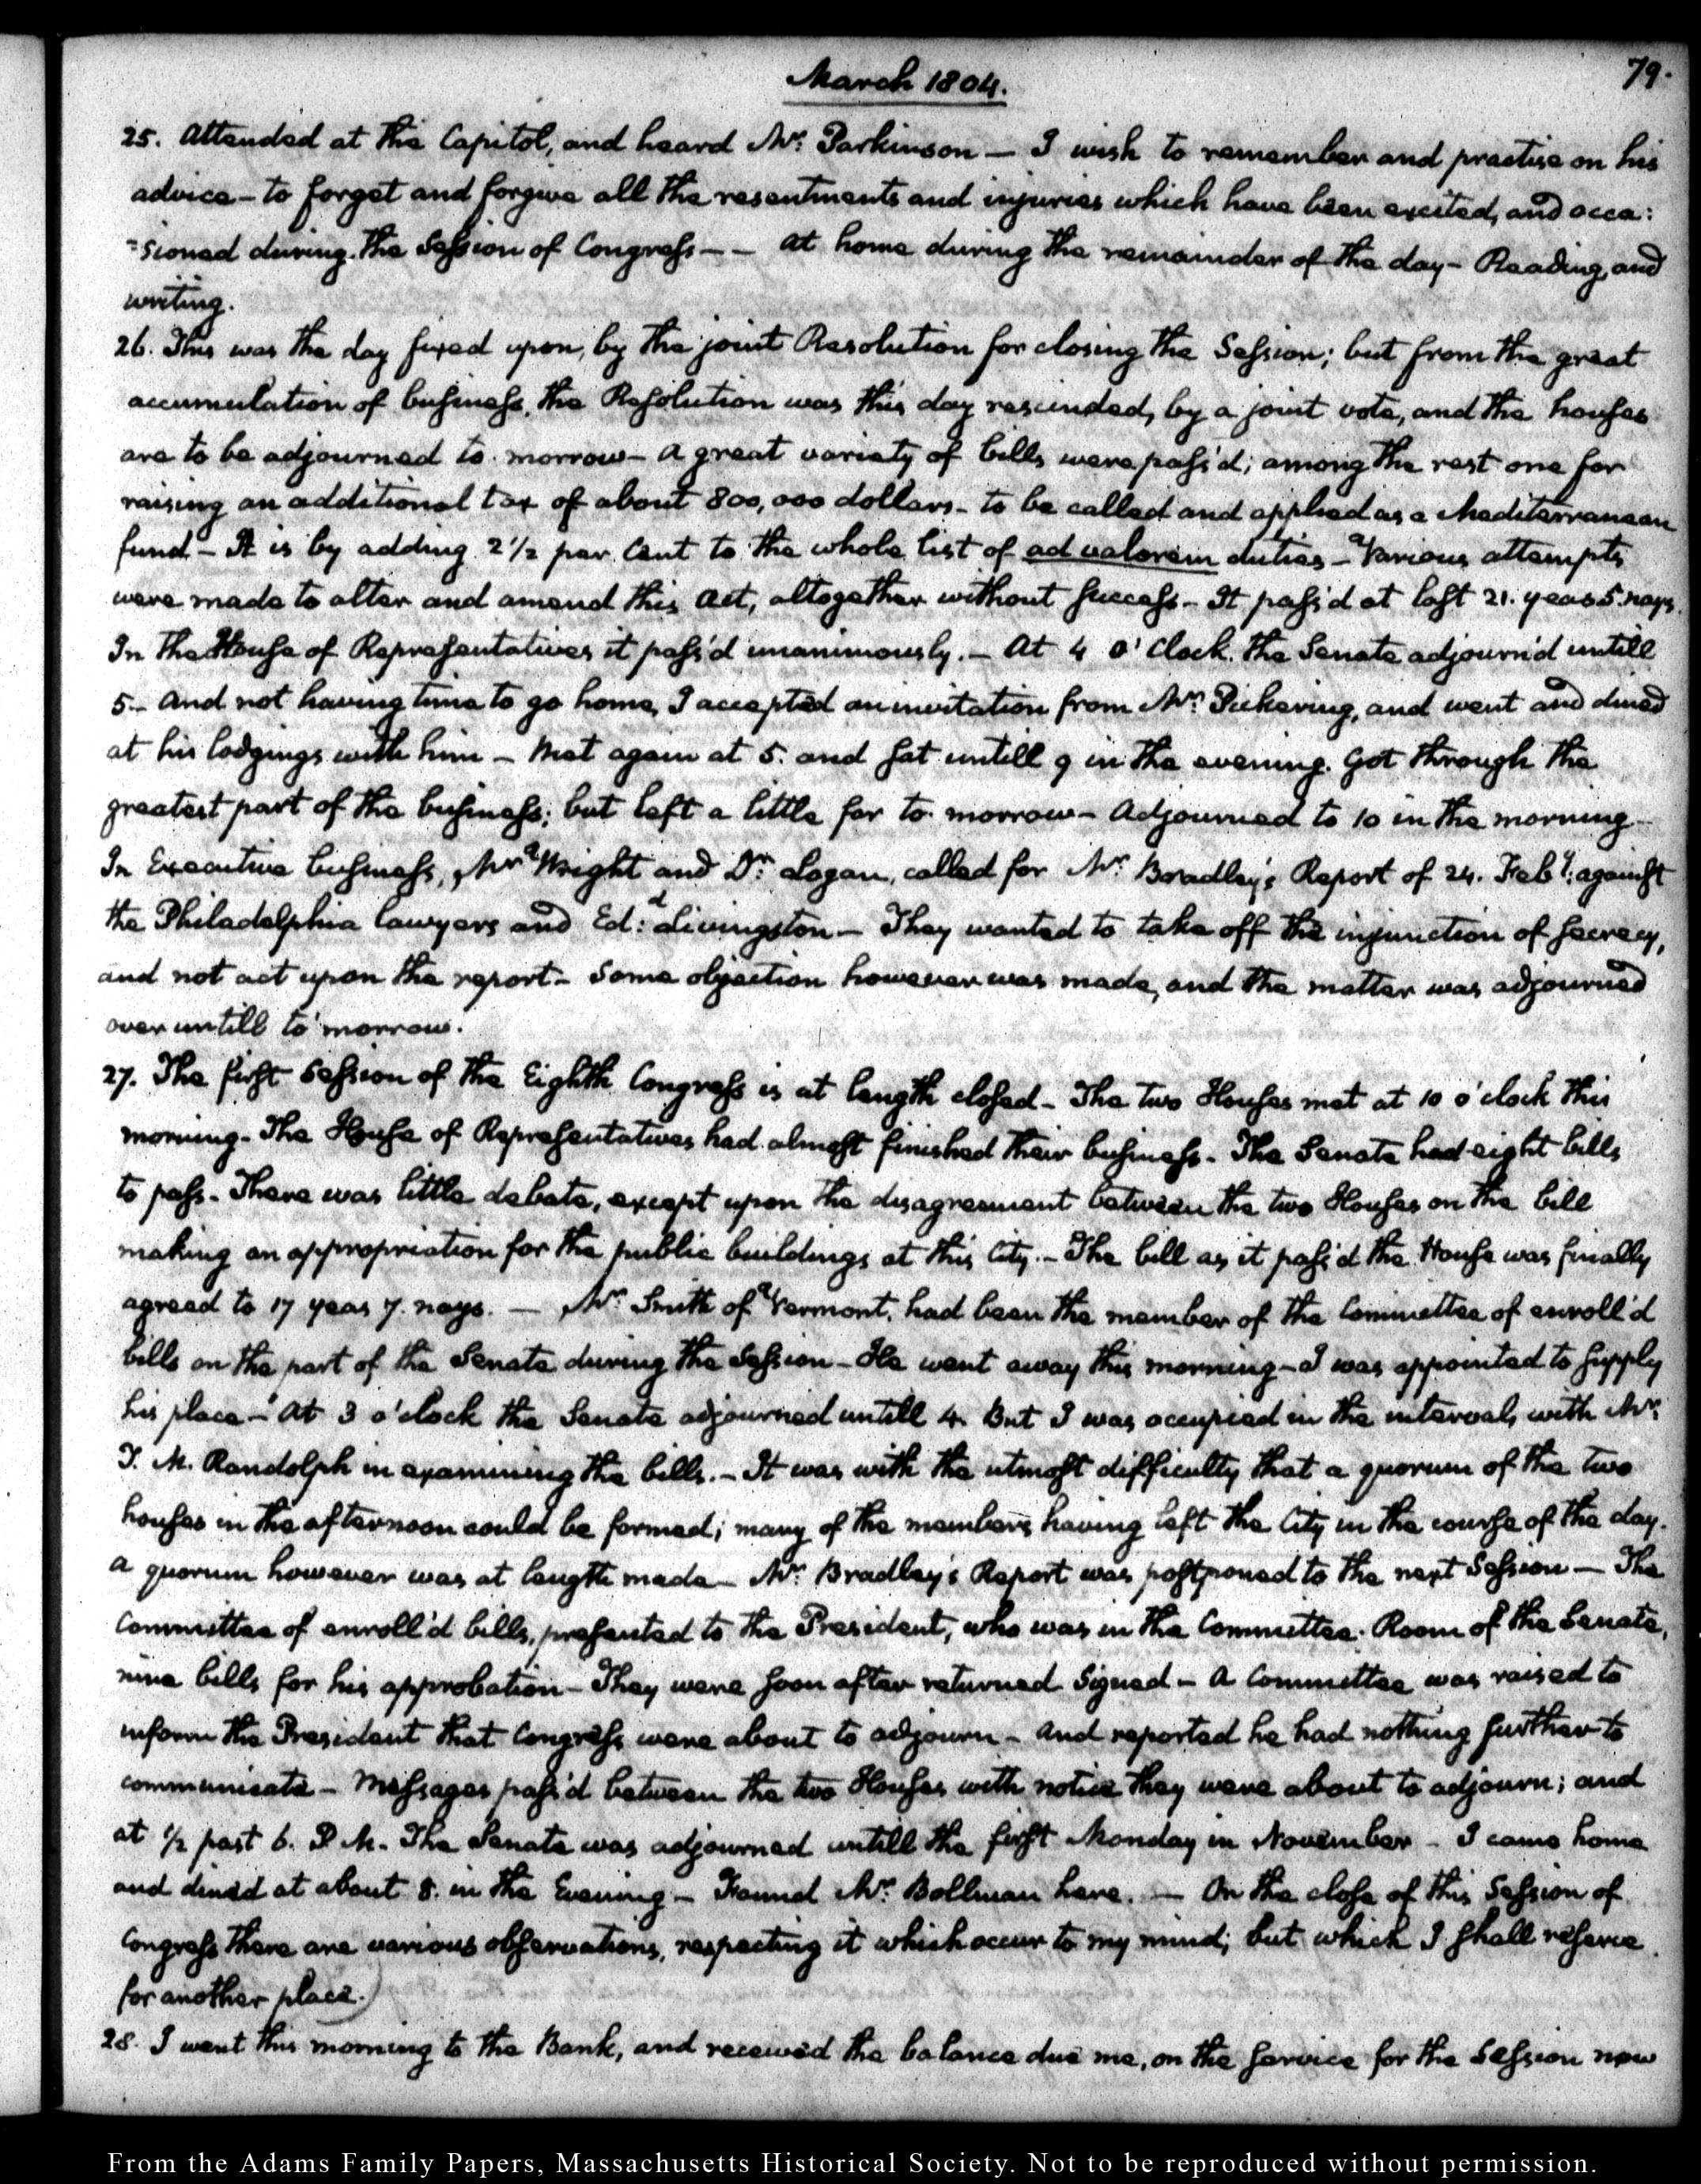 March 1804.
79.
25. Attended at the Capitol, and heard Mr: Parkinson — I wish to remember and practise on his
advice — to forget and forgive all the resentments and injuries which have been excited, and occa:
=sioned during the Session of Congress — — At home during the remainder of the day — Reading, and
writing.
26. This was the day fixed upon, by the joint Resolution for closing the Session; but from the great
accumulation of business, the Resolution was this day rescinded, by a joint vote, and the houses
are to be adjourned to-morrow — A great variety of bills were pass'd; among the rest one for
raising an additional tax of about 800,000 dollars — to be called and applied as a Mediterranean
fund — It is by adding 2 1/2 per Cent to the whole list of ad valorem duties — Various attempts
were made to alter and amend this Act, altogether without success — It pass'd at last 21. yeas 5. nays.
In the House of Representatives it pass'd unanimously. — At 4 o'Clock the Senate adjourn'd untill
5 — And not having time to go home, I accepted an invitation from Mr: Pickering, and went and dined
at his lodgings with him — Met again at 5. and sat untill 9 in the evening. Got through the
greatest part of the business; but left a little for to-morrow — Adjourned to 10 in the morning —
In Executive business, Mr: Wright and Dr: Logan, called for Mr: Bradley's Report of 24. Feby: against
the Philadelphia lawyers and Ed:d Livingston — They wanted to take off the injunction of secrecy,
and not act upon the report — Some objection however was made, and the matter was adjourned
over untill to morrow.
27. The first Session of the Eighth Congress is at length closed — The two Houses met at 10 o'clock this
morning — The House of Representatives had almost finished their business — The Senate had eight bills
to pass — There was little debate, except upon the disagreement between the two Houses on the bill
making an appropriation for the public buildings at this City. — The bill as it pass'd the House was finally
agreed to 17 yeas 7. nays. — Mr: Smith of Vermont, had been the member of the Committee of enroll'd
bills on the part of the Senate during the Session — He went away this morning — I was appointed to supply
his place — At 3 o'clock the Senate adjourned untill 4. But I was occupied in the interval, with Mr:
T. M. Randolph in examining the bills. — It was with the utmost difficulty that a quorum of the two
houses in the afternoon could be formed; many of the members having left the City in the course of the day.
A quorum however was at length made — Mr: Bradley's Report was postponed to the next Session — The
Committee of enroll'd bills, presented to the President, who was in the Committee-Room of the Senate,
nine bills for his approbation — They were soon after returned signed — A Committee was raised to
inform the President that Congress were about to adjourn — and reported he had nothing further to
communicate — Messages pass'd between the two Houses with notice they were about to adjourn; and
at 1/2 past 6. P. M. The Senate was adjourned untill the first Monday in November — I came home
and dined at about 8. in the Evening — Found Mr: Bollman here. — On the close of this Session of
Congress there are various observations, respecting it which occur to my mind; but which I shall reserve
for another place.
28. I went this morning to the Bank, and received the balance due me, on the service for the Session now
From the Adams Family Papers, Massachusetts Historical Society. Not to be reproduced without permission.